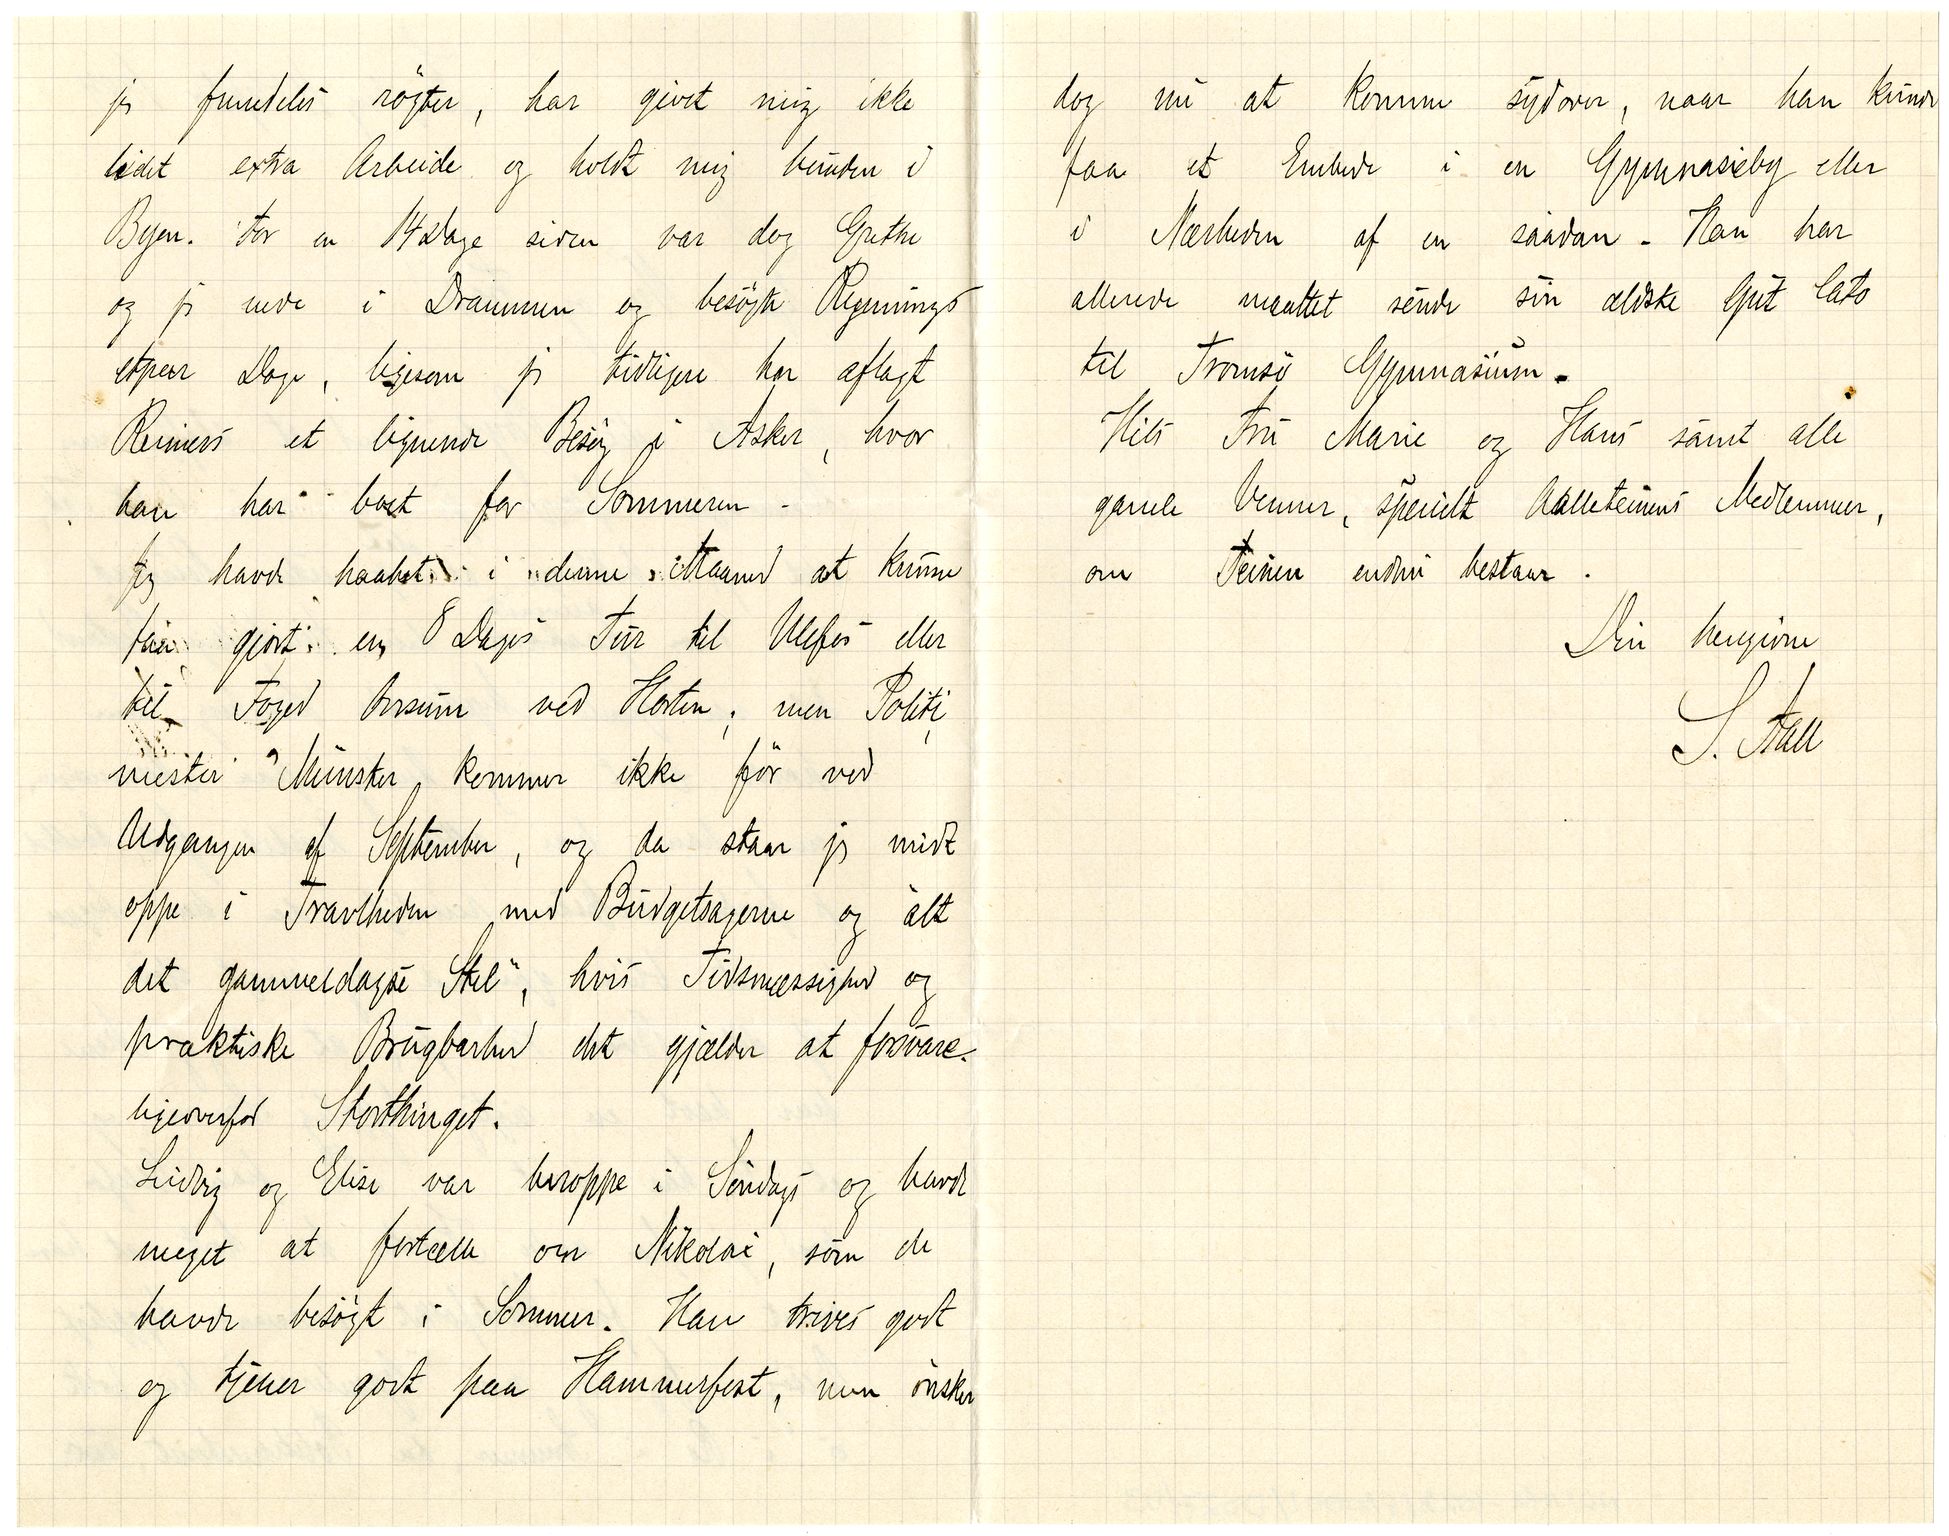 jeg fremdeles røgter, har givet mig ikke
lidet extra Arbeide og holdt mig bunden i
Byen. For en 14 Dage siden var dog Grethe
og jeg nede i Drammen og besøgte Rygnings
etpar Dage, ligesom jeg tidligere har aflagt
Reimers et lignende Besøg i Asker, hvor
han har boet for Sommeren -
Jeg havde haabet i denne Maaned at kunne
faa gjort en 8 Dages Tur til Ulefos eller
til Foged Aarsum ved Horten; men Politi
mester Münster kommer ikke før ved
Udgangen af September, og da staar jeg midt
oppe i Travlheden med Budgetsagerne og alt
det gammeldagse Stel", hvis Tidsmæssighed og
praktiske Brugbarhed det gjælder at forsvare
ligeoverfor Storthinget.
Ludvig og Elise var heroppe i Søndags og havde
meget at fortælle om Nikolai, som de
havde besøgt i Sommer. Han trives godt
og tjener godt paa Hammerfest, men ønsker
dog nu at komme sydover, naar han kunde
faa et Embede i en Gymnasieby eller
i Nærheden af en saadan - Han har
allerede maattet sende sin ældste Gut Cato
til Tromsø Gymnasium.
Hils Fru Marie og Hans samt alle
gamle Venner, specielt Aalleteinens Medlemmer,
om Teinen endnu bestaar.
Din hengivne
S. Aall